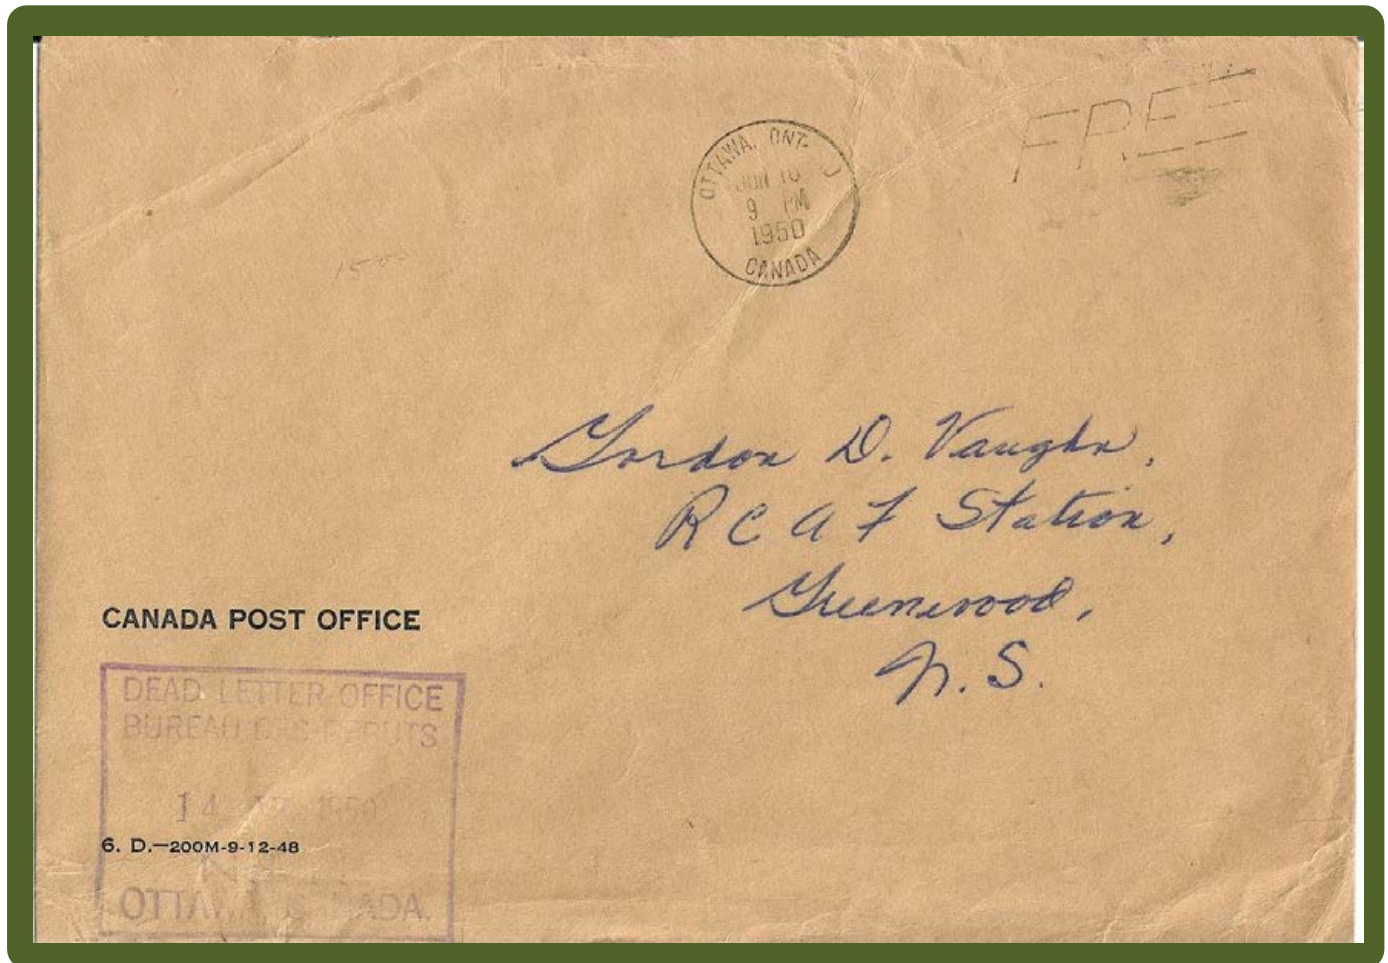 FREE
OTTAWA, ONT-
JUN
9 PM
1950
CANADA
1500
Gordon D. Vaughn,
R C A F Station,
Greenwood,
N. S.
CANADA POST OFFICE
DEAD LETTER OFFICE
BUREAU DES REBUTS
14 1950
6. D.—200M-9-12-48
OTTAWA CANADA.